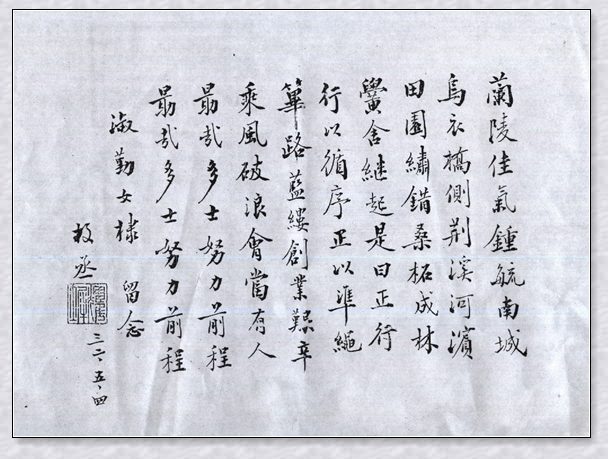 蘭陵佳氣鍾毓南城
烏衣橋側荆溪河濱
田園繡錯桑柘成林
黌舍繼起是曰正行
行以循序正以準繩
篳路藍縷創業艱辛
乘風破浪會當有人
勗哉多士努力前程
勗哉多士努力前程
淑勤女棣 留念
枚丞
三六、五、四